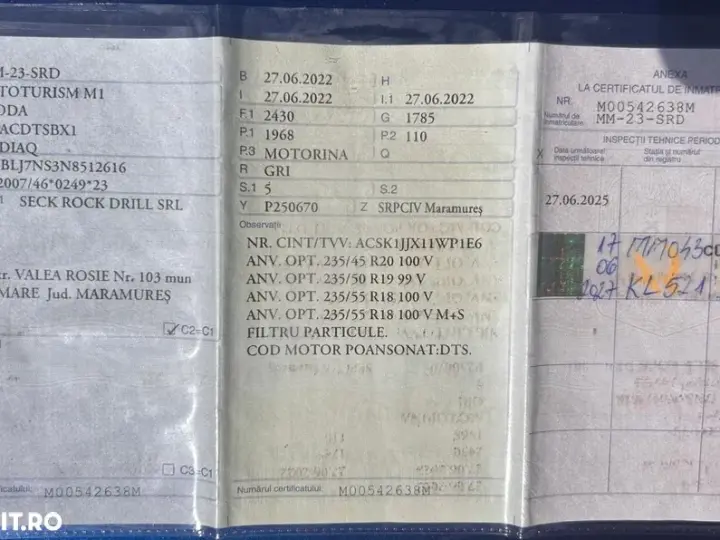 M-23-SRD
TOTURISM M1
ODA
ACDTSBX1
DIAQ
BLJ7NS3N8512616
2007/46*0249*23
1 SECK ROCK DRILL SRL
tr. VALEA ROSIE Nr. 103 mun
MARE Jud. MARAMUREȘ
C2=C1
C3=C1
certificatului: M00542638M
B 27.06.2022 H
I 27.06.2022 I.1 27.06.2022
F.1 2430 G 1785
P.1 1968 P.2 110
P.3 MOTORINA Q
R GRI
S.1 5 S.2
Y P250670 Z SRPCIV Maramureș
Observații
NR. CINT/TVV: ACSK1JJX11WP1E6
ANV. OPT. 235/45 R20 100 V
ANV. OPT. 235/50 R19 99 V
ANV. OPT. 235/55 R18 100 V
ANV. OPT. 235/55 R18 100 V M+S
FILTRU PARTICULE.
COD MOTOR POANSONAT:DTS.
Numărul certificatului: M00542638M
ANEXA
LA CERTIFICATUL DE INMATR
NR. M00542638M
Numărul de înmatriculare: MM-23-SRD
INSPECȚII TEHNICE PERIOD
X Data următoarei inspecții tehnice
Stația și numărul din registru
27.06.2025
17 06 2027
MM043
KL521
IT.RO